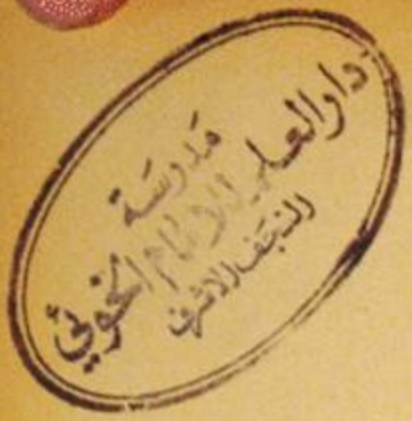 مَدرسَة
دار العلم للامام الخوئي
النجف الاشرف